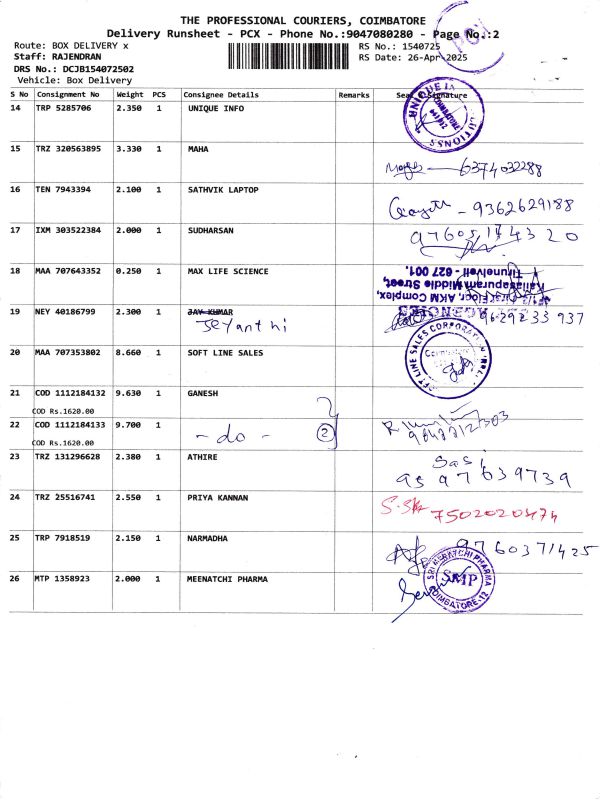 THE PROFESSIONAL COURIERS, COIMBATORE
Delivery Runsheet - PCX - Phone No.:9047080280 - Page No.:2
Route: BOX DELIVERY x
RS No.: 1540725
Staff: RAJENDRAN
RS Date: 26-Apr-2025
DRS No.: DCJB154072502
Vehicle: Box Delivery
S No Consignment No Weight PCS Consignee Details Remarks Seal & Signature
14 TRP 5285706 2.350 1 UNIQUE INFO
COIMBATORE
15 TRZ 320563895 3.330 1 MAHA
6374032288
16 TEN 7943394 2.100 1 SATHVIK LAPTOP
9362629188
17 IXM 303522384 2.000 1 SUDHARSAN
18 MAA 707643352 0.250 1 MAX LIFE SCIENCE
First Floor, AKM Complex,
Kailasapuram Middle Street,
Tirunelveli - 627 001.
19 NEY 40186799 2.300 1 JAY KUMAR
Jeyanthi
9629233937
20 MAA 707353802 8.660 1 SOFT LINE SALES
SOFT LINE SALES CORPORATION
Coimbatore
21 COD 1112184132 9.630 1 GANESH
COD Rs.1620.00
22 COD 1112184133 9.700 1 - do - 2
COD Rs.1620.00
23 TRZ 131296628 2.380 1 ATHIRE
Sasi
9597639739
24 TRZ 25516741 2.550 1 PRIYA KANNAN
7502020474
25 TRP 7918519 2.150 1 NARMADHA
9760371425
26 MTP 1358923 2.000 1 MEENATCHI PHARMA
SRI MEENATCHI PHARMA
SMP
COIMBATORE-12